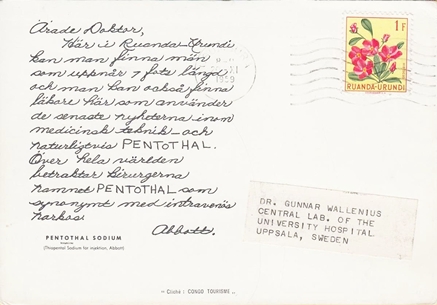 Ärade Doktor,
Här i Ruanda-Urundi
kan man finna män
som uppnår 7 fots längd
och man kan också finna
läkare här som använder
de senaste nyheterna inom
medicinsk teknik - och
naturligtvis PENTOTHAL.
Över hela världen
betraktar kirurgerna
namnet PENTOTHAL som
synonymt med intravenös
narkos.
Abbott.
PENTOTHAL SODIUM
(Thiopental Sodium för injektion, Abbott)
1 F
RUANDA-URUNDI
DR. GUNNAR WALLENIUS
CENTRAL LAB. OF THE
UNIVERSITY HOSPITAL
UPPSALA, SWEDEN
- Cliché : CONGO TOURISME -